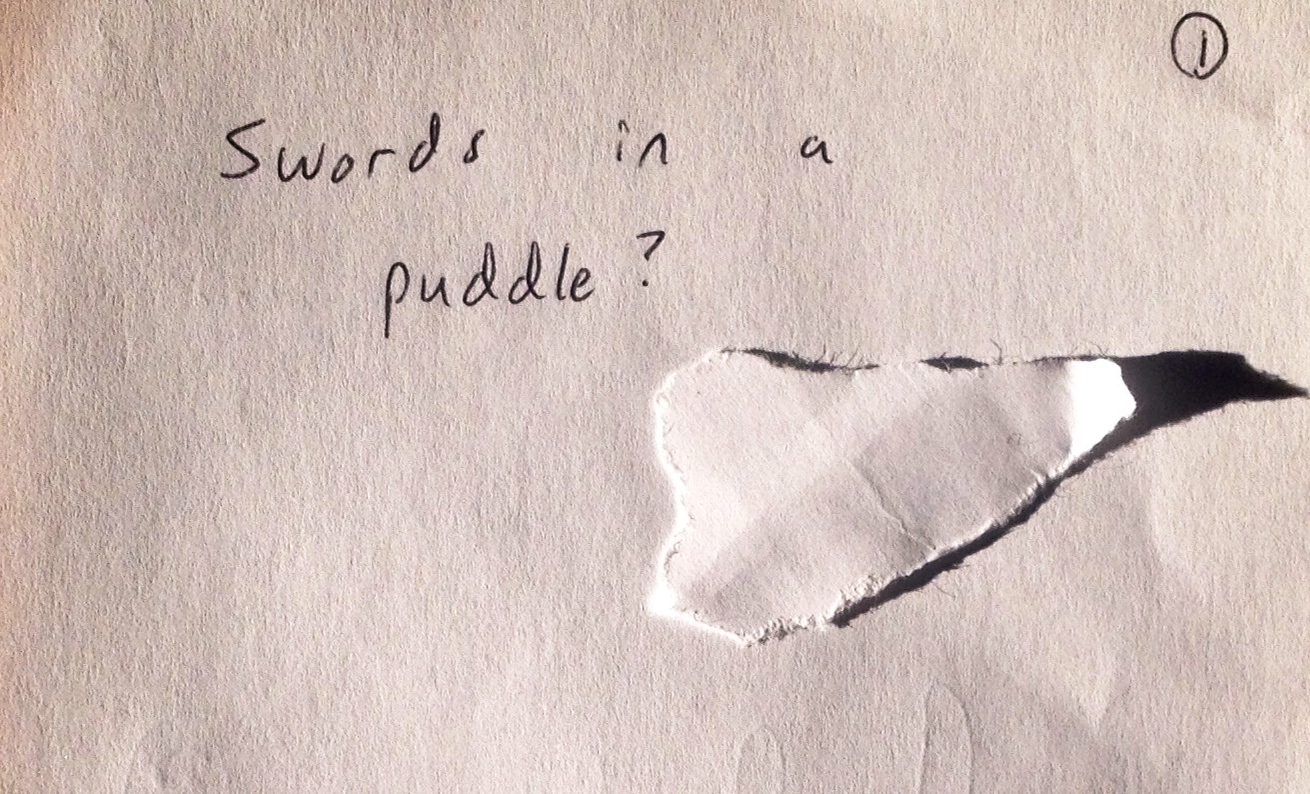 ①
Swords in a
puddle?